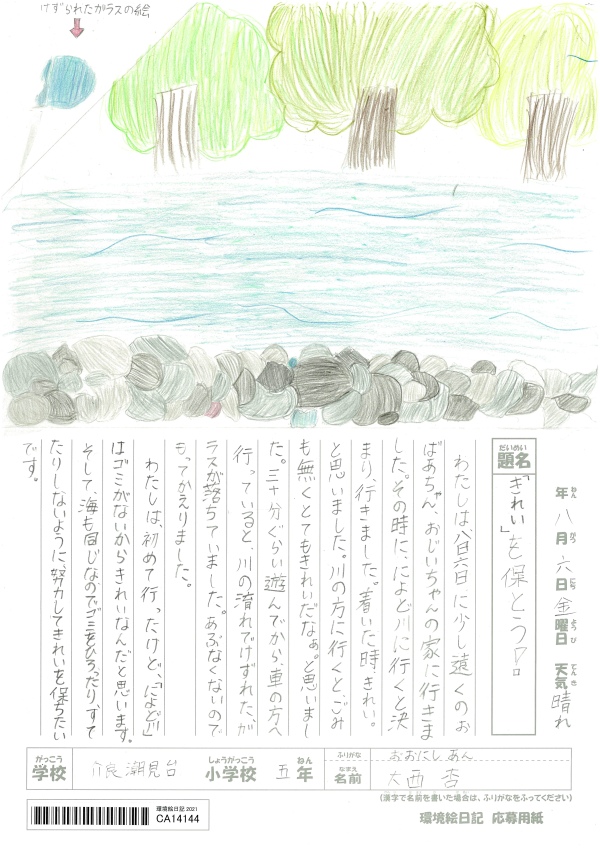 けずられたガラスの絵
年 八月 六日 金曜日 天気 晴れ
ねん がつ にち ようび てんき
だいめい
題名 「きれい」を保とう!
わたしは八月六日に少し遠くのお
ばあちゃん、おじいちゃんの家に行きま
した。その時に、によど川に行くと決
まり、行きました。着いた時、きれい。
と思いました。川の方に行くと、ごみ
も無くとてもきれいだなぁ。と思いまし
た。三十分ぐらい遊んでから、車の方へ
行っていると、川の流れでけずれた、ガ
ラスが落ちていました。あぶなくないので
もってかえりました。
わたしは、初めて行ったけど、「によど川」
はゴミがないからきれいなんだと思います。
そして、海も同じなのでゴミをひろったり、すて
たりしないように、努力してきれいを保ちたい
です。
がっこう しょうがっこう ねん ふりがな おおにし あん
学校 介良潮見台 小学校 五年 なまえ 名前 大西 杏
(漢字で名前を書いた場合は、ふりがなをふってください)
環境絵日記 2021
CA14144
環境絵日記 応募用紙